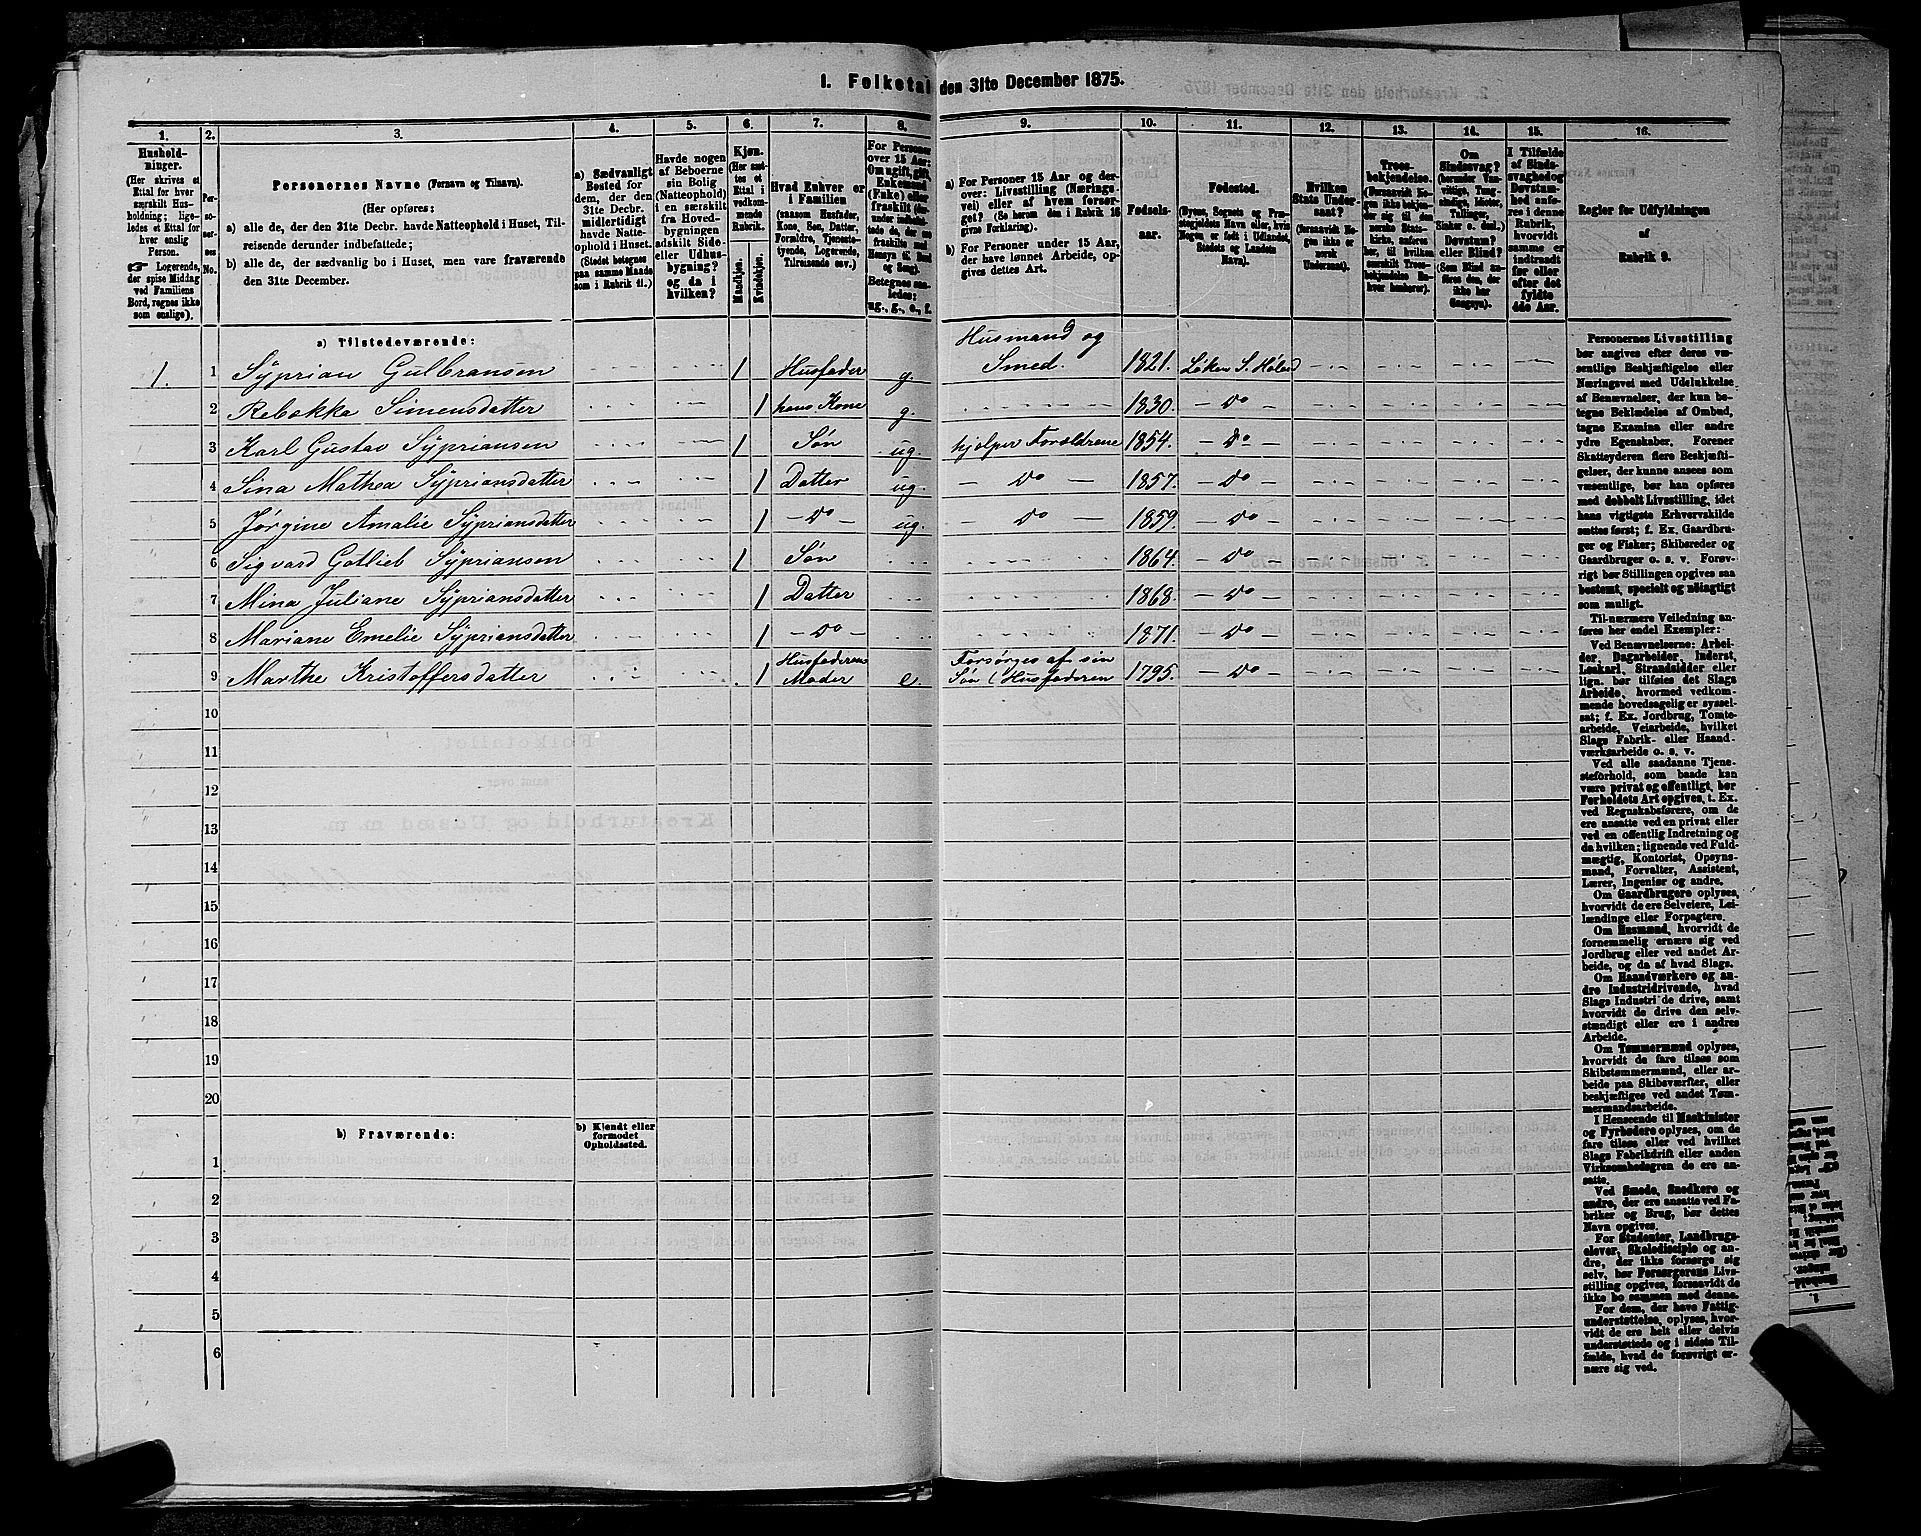 1. Folketal den 31te December 1875.
1.
2.
3.
4.
5.
6.
7.
8.
9.
10.
11.
12.
13.
14.
15.
16.
Hushold-
ninger.
(Her skrives et
Ettal for hver
særskilt Hus-
holdning; lige-
ledes et Ettal
for hver
enslig
Person.
Logerende,
der spise Middag
ved Familiens
Bord, regnes ikke
som enslige).
Per-
so-
ner-
nes
No.
Personernes Navne (Fornavn og Tilnavn).
(Her opføres:
a) alle de, der den 31te Decbr. havde Natteophold i Huset, Til-
reisende derunder indbefattede;
b) alle de, der sædvanlig bo i Huset, men vare fraværende
den 31te December.
a) Sædvanligt
Bosted for
dem, der den
31te Decbr.
midlertidigt
havde Natte-
ophold i Huset.
(Stedet betegnes
paa samme Maade
som i Rubrik 11.)
Havde nogen
af Beboerne
sin Bolig
(Natteophold)
i en særskilt
fra Hoved-
bygningen
adskilt Side-
eller Udhus-
bygning?
og da i
hvilken?
Kjøn.
(Her sæt-
tes et
Ettal i
vedkom-
mende
Rubrik.
Mandkjøn.
Kvindekjøn.
Hvad Enhver er
i Familien
(saasom Husfader,
Kone, Søn, Datter,
Forældre, Tjeneste-
tyende, Logerende,
Tilreisende osv.)
For Personer
over 15 Aar:
Om ugift, gift,
Enkemand
(Enke) eller
fraskilt
Betegnes saa-
ledes:
ug., g., e., f.
a) For Personer 15 Aar og der-
over: Livsstilling (Nærings-
vei) eller af hvem forsør-
get? (Se herom den i Rubrik 16
givne Forklaring).
b) For Personer under 15 Aar,
der have lønnet Arbeide, op-
gives dettes Art.
Fødsels-
aar.
Fødested.
(Byens, Sognets og Præ-
stegjeldets Navn eller, hvis
Nogen er født i Udlandet,
Stedets og Landets
Navn).
Hvilken
Stats Under-
saat?
(forsaavidt No-
gen ikke er
norsk
Undersaat).
Troes-
bekjendelse.
(Forsaavidt No-
gen ikke bekjen-
der sig til den
norske Stats-
kirke, anføres
her, til hvilken
særskilt Troes-
bekjendelse En-
hver henhører).
Om
Sindssvag?
(herunder Van-
vittige, Tung-
sindige, Idioter,
Tullinger,
Sinker o. desl.)
Døvstum?
eller Blind?
(Som Blind an-
føres den, der
ikke har
Gangsyn).
I Tilfælde
af Sinds-
svaghed og
Døvstum-
hed anfø-
res i denne
Rubrik,
hvorvidt
samme er
indtraadt
før eller
efter det
fyldte
4de Aar.
Regler for Udfyldningen
af
Rubrik 9.
a) Tilstedeværende:
Husmand og
1. 1 Syprian Gulbransen 1 Husfader g. Smed. 1821. Løken S. Høland
2 Rebekka Simensdatter 1 hans Kone g. 1830. — Do —
3 Karl Gustav Sypriansen 1 Søn ug. hjælper Forældrene 1854. — Do —
4 Sina Mathea Sypriansdatter 1 Datter ug. — Do — 1857. — Do —
5 Jørgine Amalie Sypriansdatter 1 — Do — ug. — Do — 1859. — Do —
6 Sigvard Gotlieb Sypriansen 1 Søn 1864. — Do —
7 Mina Juliane Sypriansdatter 1 Datter 1868. — Do —
8 Mariane Emelie Sypriansdatter 1 — Do — 1871. — Do —
Husfaderens Forsørges af sin
9 Marthe Kristoffersdatter 1 Moder e. Søn (Husfaderen 1795. — Do —
10
11
12
13
14
15
16
17
18
19
20
b) Fraværende:
b) Kjendt eller
formodet
Opholdssted.
1
2
3
4
5
6
Personernes Livsstilling
bør angives efter deres væ-
sentlige Beskjæftigelse eller
Næringsvei med Udelukkelse
af Benævnelser, der kun be-
tegne Beklædelse af Ombud,
tagne Examina eller andre
ydre Egenskaber. Forener
Skatteyderen flere Beskjæfti-
gelser, der kunne ansees som
væsentlige, bør han opføres
med dobbelt Livsstilling, idet
hans vigtigste Erhvervskilde
sættes først; f. Ex. Gaardbru-
ger og Fisker; Skibsreder og
Gaardbruger o. s. v. Forøv-
rigt bør Stillingen opgives saa
bestemt, specielt og nøiagtigt
som muligt.
Til nærmere Veiledning an-
føres her endel Exempler:
Ved Benævnelserne: Arbei-
der, Dagarbeider, Inderst,
Løskarl, Strandsidder eller
lign. bør tilføies det Slags
Arbeide, hvormed vedkom-
mende hovedsagelig er syssel-
sat; f. Ex. Jordbrug, Tomte-
arbeide, Veiarbeide, hvilket
Slags Fabrik- eller Haand-
værksarbeide o. s. v.
Ved alle saadanne Tjene-
steforhold, som baade kan
være privat og offentligt, bør
Forholdets Art opgives, t. Ex.
ved Regnskabsførere, om de
ere ansatte ved en privat eller
ved en offentlig Indretning og
da hvilken; lignende ved Fuld-
mægtig, Kontorist, Opsyns-
mand, Forvalter, Assistent,
Lærer, Ingeniør og andre.
Om Gaardbrugere oplyses,
hvorvidt de ere Selveiere, Lei-
lændinge eller Forpagtere.
Om Husmænd, hvorvidt de
fornemmelig ernære sig ved
Jordbrug eller ved andet Ar-
beide, og da af hvad Slags.
Om Haandværkere og an-
dre Industridrivende, hvad
Slags Industri de drive, samt
hvorvidt de drive den selv-
stændigt eller ere i andres
Arbeide.
Om Tømmermænd oplyses,
hvorvidt de fare tilsøs som
Skibstømmermænd, eller ar-
beide paa Skibsværfter, eller
beskjæftiges ved andet Tøm-
mermandsarbeide.
I Henseende til Maskinister
og Fyrbødere oplyses, om de
fare tilsøs eller ved hvilket
Slags Fabrikdrift eller anden
Virksomhedsgren de ere an-
satte.
Ved Smede, Snedkere og
andre, der ere ansatte ved Fa-
briker og Brug, bør dettes
Navn opgives.
For Studenter, Landbrugs-
elever, Skoledisciple og an-
dre, der ikke forsørge sig
selv, bør Forsørgerens Livs-
stilling opgives, forsaavidt de
ikke bo sammen med denne.
For dem, der have Fattig-
understøttelse, oplyses, hvor-
vidt de ere helt eller delvis
understøttede og i sidste Til-
fælde, hvad de forøvrigt er-
nære sig ved.